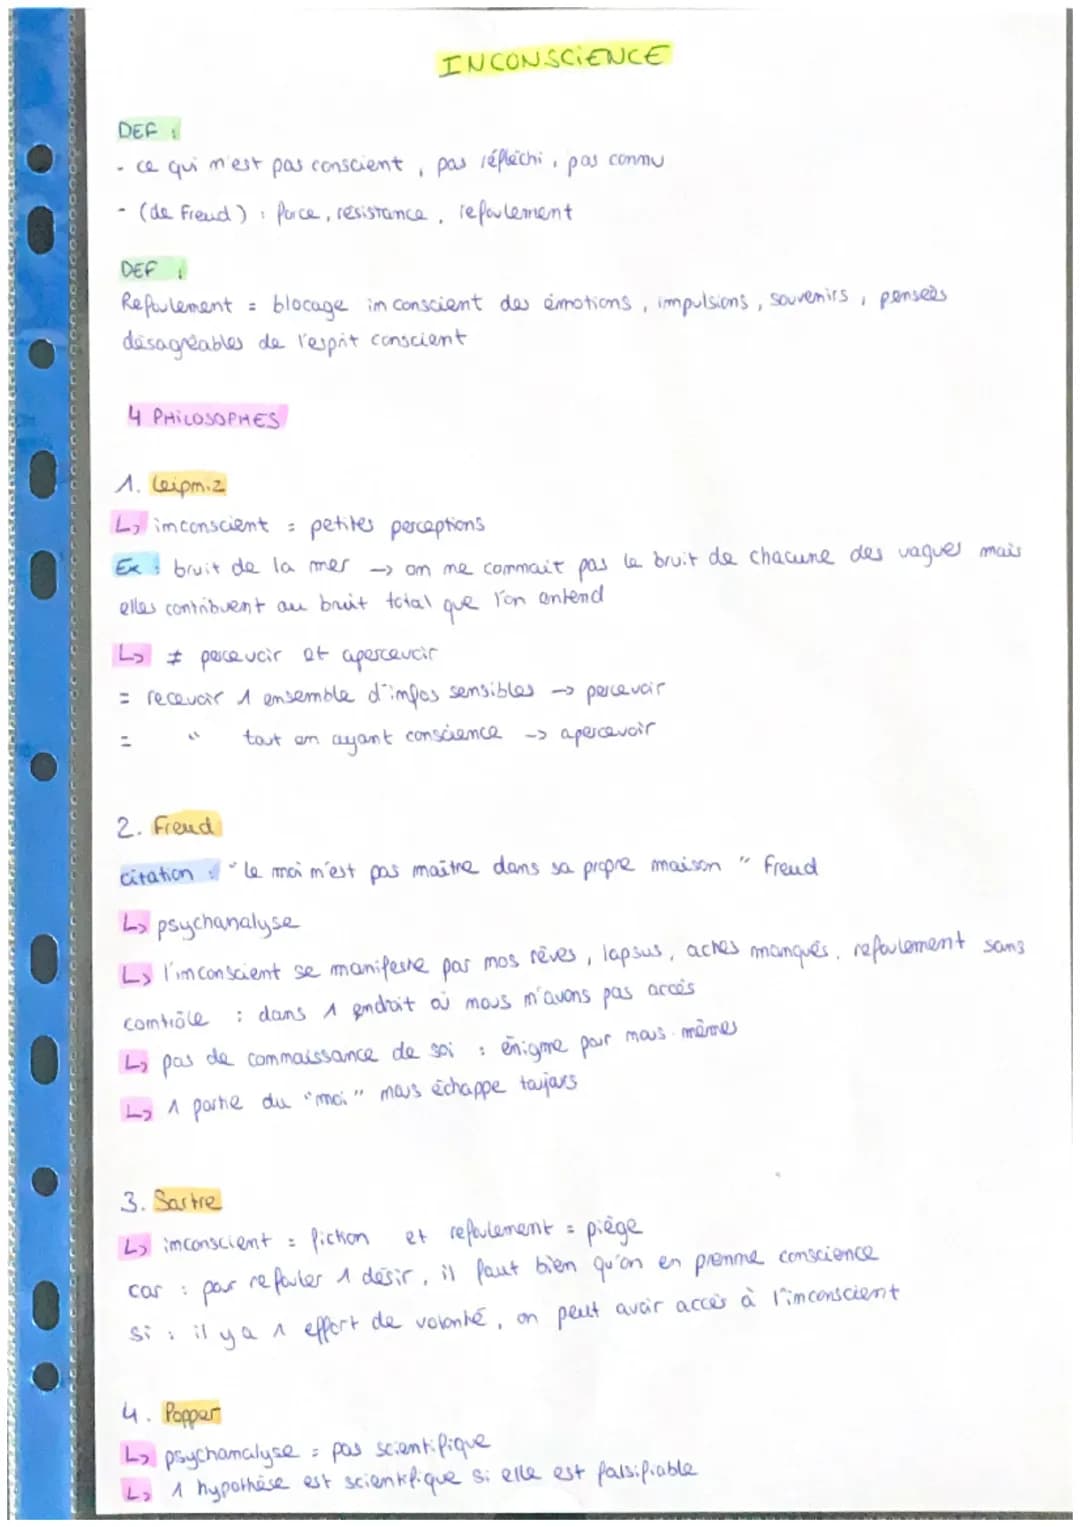 INCONSCIENCE
DEF :
- ce qui n'est pas conscient, pas réfléchi, pas connu
- (de Freud) : force, résistance, refoulement
DEF :
Refoulement = blocage inconscient des émotions, impulsions, souvenirs, pensées
désagréables de l'esprit conscient
4 PHILOSOPHES
1. Leipniz
↳ inconscient = petites perceptions
Ex : bruit de la mer → on ne connait pas le bruit de chacune des vagues mais
elles contribuent au bruit total que l'on entend
↳ ≠ percevoir et apercevoir
= recevoir 1 ensemble d'infos sensibles → percevoir
= " tout en ayant conscience → apercevoir
2. Freud
citation : "le moi n'est pas maître dans sa propre maison" Freud
↳ psychanalyse
↳ l'inconscient se manifeste par nos rêves, lapsus, actes manqués, refoulement sans
contrôle : dans 1 endroit où nous n'avons pas accès
↳ pas de connaissance de soi : énigme pour nous-mêmes
↳ 1 partie du "moi" nous échappe toujours
3. Sartre
↳ inconscient = fiction et refoulement = piège
car : pour refouler 1 désir, il faut bien qu'on en prenne conscience
si : il y a 1 effort de volonté, on peut avoir accès à l'inconscient
4. Popper
↳ psychanalyse = pas scientifique
↳ 1 hypothèse est scientifique si elle est falsifiable